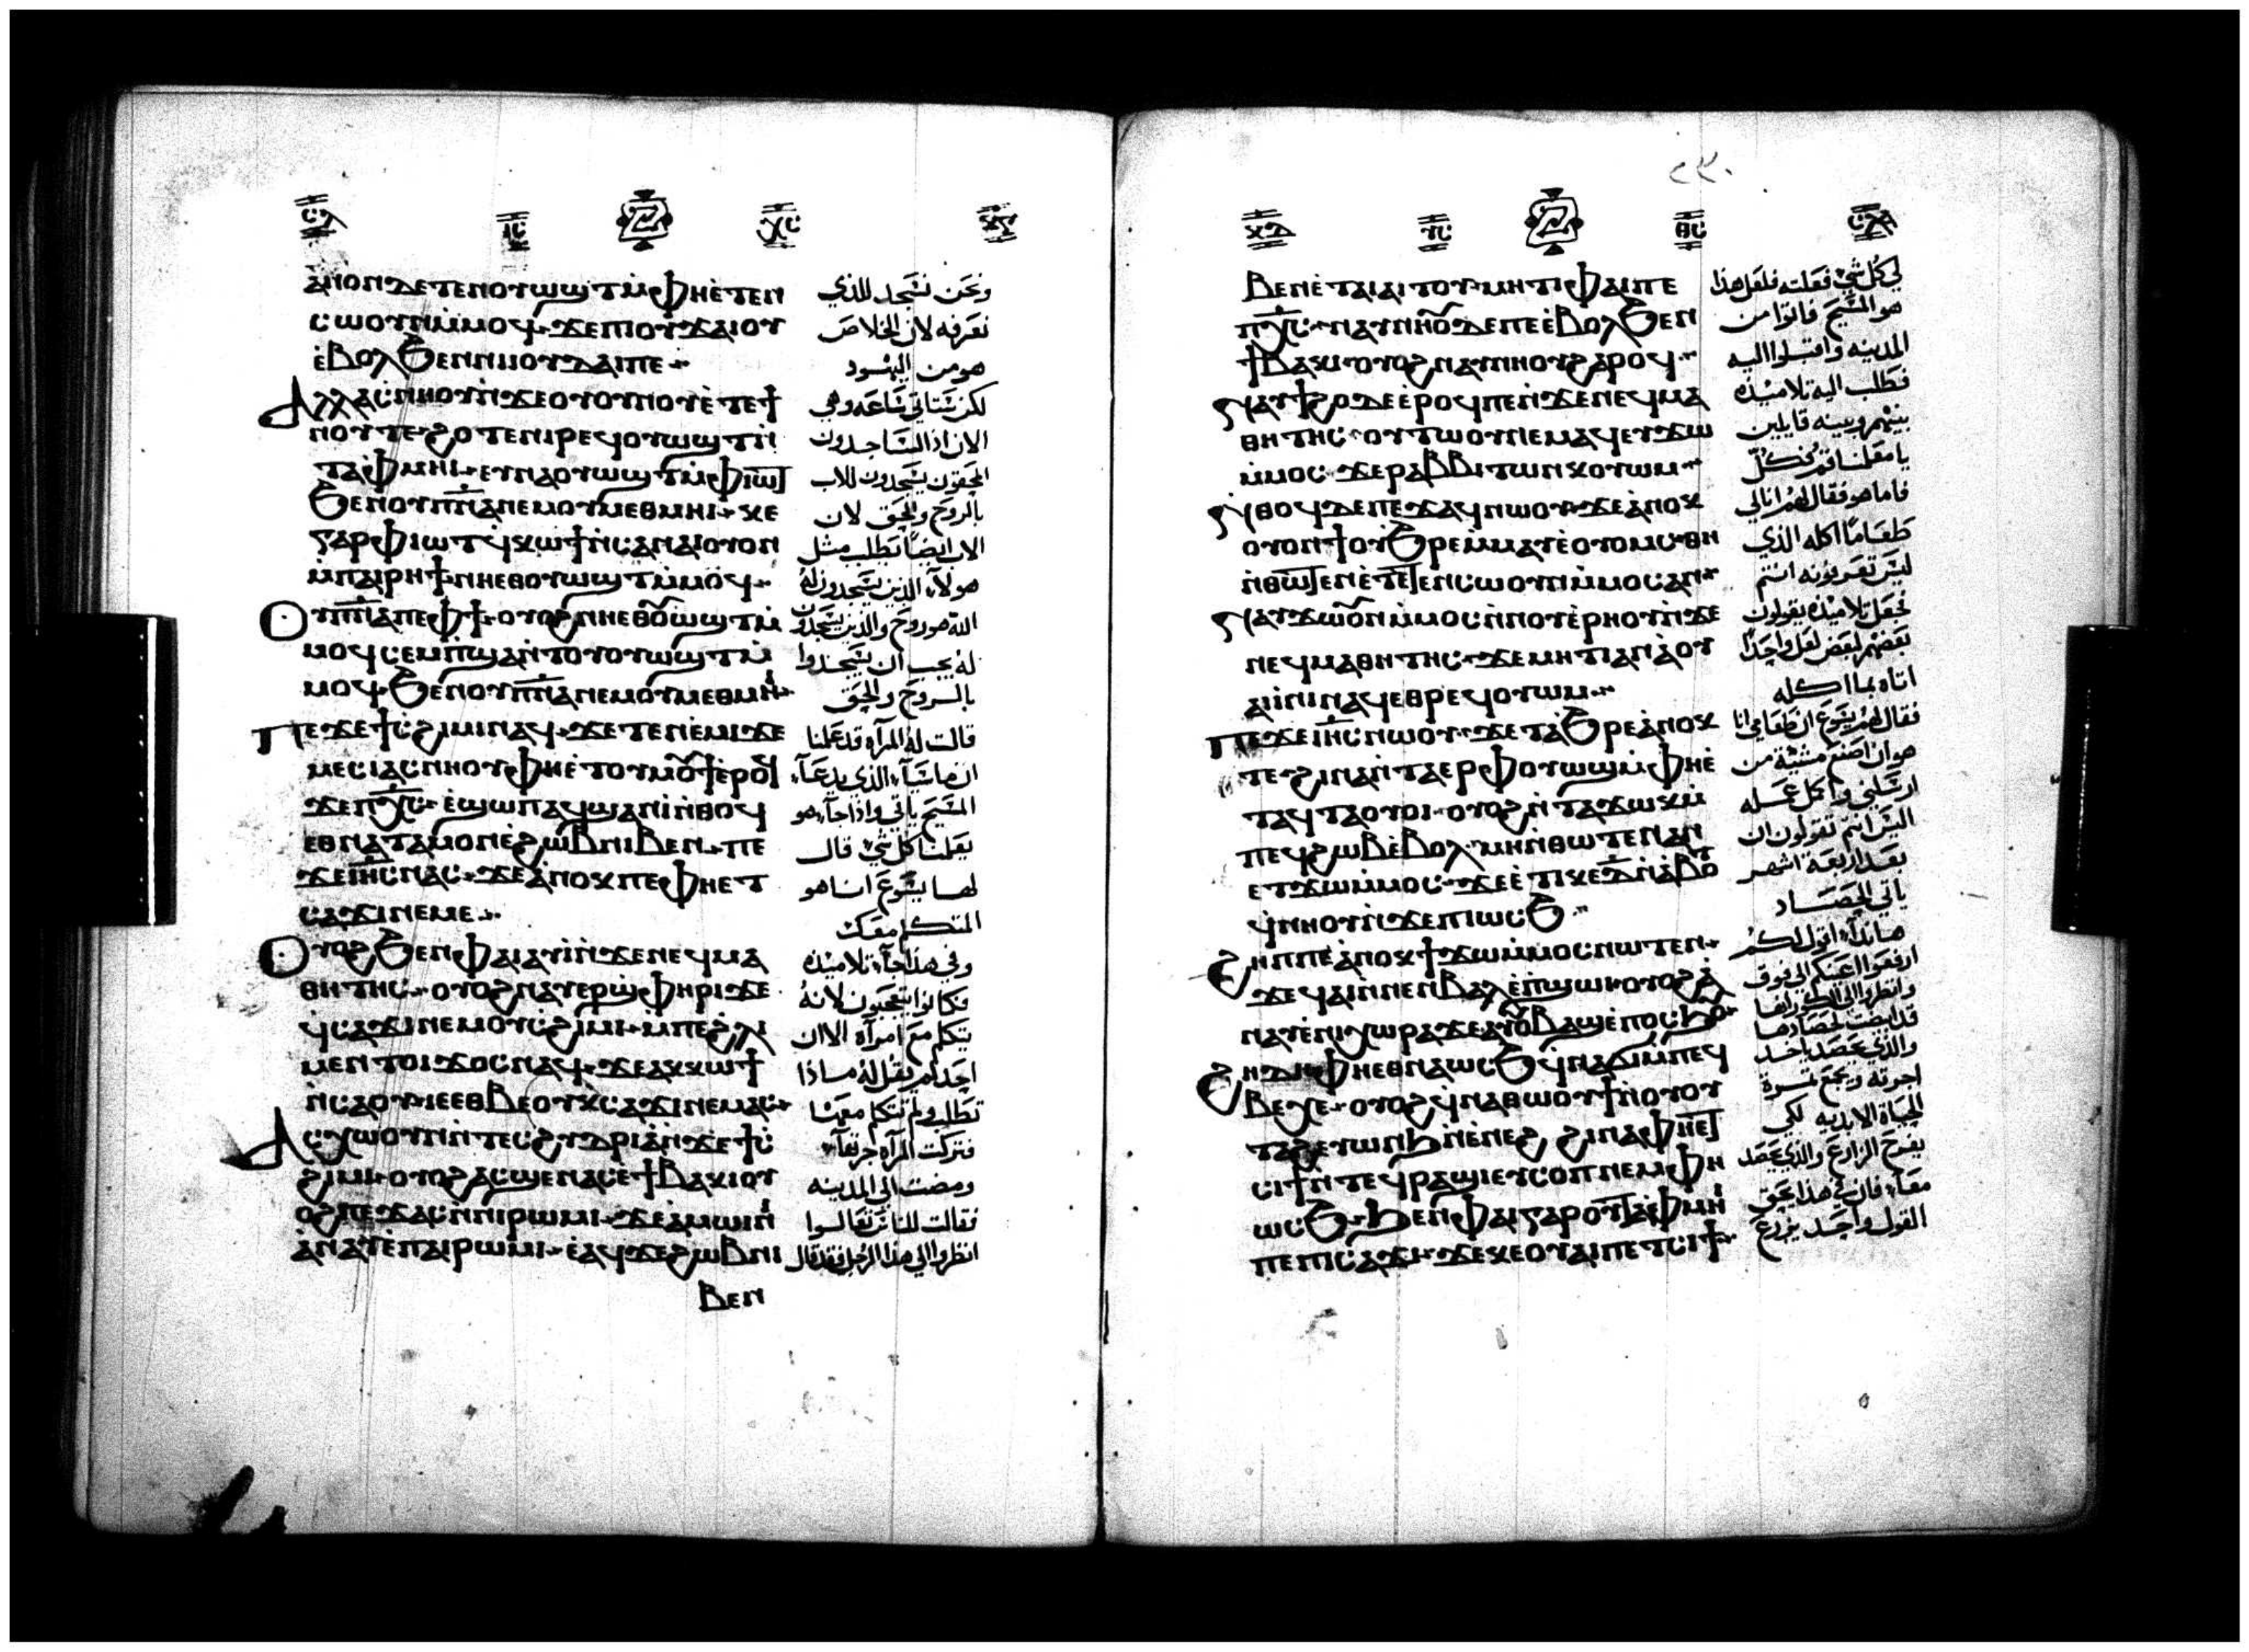 ⲥⲗ
ⲓⲥ
ⲭⲥ
ⲁⲛⲟⲛⲇⲉⲧⲉⲛⲟⲩⲱϣⲧⲙⲫⲏⲉⲧⲉⲛ
ⲥⲱⲟⲩⲛⲙⲙⲟϥ ϫⲉⲡⲓⲟⲩϫⲁⲓⲟⲩ
ⲉⲃⲟⲗϧⲉⲛⲛⲓⲓⲟⲩⲇⲁⲓⲡⲉ
Ⲁⲗⲗⲁⲥⲛⲏⲟⲩⲛϫⲉⲟⲩⲟⲩⲛⲟⲩⲉⲧⲉϯ
ⲛⲟⲩⲧⲉ ϩⲟⲧⲉⲛⲓⲣⲉϥⲟⲩⲱϣⲧⲛ
ⲧⲁⲫⲙⲏⲓ ⲉⲩⲛⲁⲟⲩⲱϣⲧⲙⲫⲓⲱⲧ
ϧⲉⲛⲟⲩⲡⲛⲁⲛⲉⲙⲟⲩⲙⲉⲑⲙⲏⲓ ⲕⲉ
ⲅⲁⲣⲫⲓⲱⲧϥⲕⲱϯⲛⲥⲁⲛⲁⲓⲟⲩⲟⲛ
ⲙⲡⲁⲓⲣⲏϯ ⲛⲏⲉⲑⲟⲩⲱϣⲧⲙⲙⲟϥ
Ⲟⲩⲡⲛⲁⲡⲉⲫϯ ⲟⲩⲟϩⲛⲏⲉⲑⲟⲩⲱϣⲧⲙ
ⲙⲟϥⲥⲉⲙⲡϣⲁⲛⲧⲟⲩⲟⲩⲱϣⲧⲙ
ⲙⲟϥ ϧⲉⲛⲟⲩⲡⲛⲁⲛⲉⲙⲟⲩⲙⲉⲑⲙⲏⲓ
Ⲡⲉϫⲉϯⲥϩⲓⲙⲓⲛⲁϥ ϫⲉⲧⲉⲛⲉⲙⲓϫⲉ
ⲙⲉⲥⲓⲁⲥⲛⲏⲟⲩⲫⲏⲉⲧⲟⲩⲙⲟⲩϯⲉⲣⲟϥ
ϫⲉⲡⲭⲥ ⲉϣⲱⲡⲁϥϣⲁⲛⲓⲛⲑⲟϥ
ⲉⲑⲛⲁⲧⲁⲙⲟⲛⲉϩⲱⲃⲛⲓⲃⲉⲛ ⲡⲉ
ϫⲉⲓⲏⲥⲛⲁⲥ ϫⲉⲁⲛⲟⲕⲡⲉⲫⲏⲉⲧ
ⲥⲁϫⲓⲛⲉⲙⲉ
Ⲟⲩⲟϩϧⲉⲛⲫⲁⲓⲁⲩⲓⲛϫⲉⲛⲉϥⲙⲁ
ⲑⲏⲧⲏⲥ ⲟⲩⲟϩⲛⲁⲩⲉⲣϣⲫⲏⲣⲓϫⲉ
ϥⲥⲁϫⲓⲛⲉⲙⲟⲩⲥϩⲓⲙⲓ ⲙⲡⲉϩⲗⲓ
ⲙⲉⲛⲧⲟⲓϫⲟⲥⲛⲁϥ ϫⲉⲁⲕⲕⲱϯ
ⲛⲥⲁⲟⲩ ⲓⲉⲉⲑⲃⲉⲟⲩⲕⲥⲁϫⲓⲛⲉⲙⲁⲥ
Ⲁⲥⲭⲱⲟⲩⲛⲛⲧⲉⲥϩⲩⲇⲣⲓⲁⲛϫⲉϯⲥ
ϩⲓⲙⲓ ⲟⲩⲟϩⲁⲥϣⲉⲛⲁⲥⲉϯⲃⲁⲕⲓⲟⲩ
ⲟϩⲡⲉϫⲁⲥⲛⲛⲓⲣⲱⲙⲓ ϫⲉⲁⲙⲱⲓⲛⲓ
ⲁⲛⲁⲩⲉⲡⲁⲓⲣⲱⲙⲓ ⲉⲁϥϫⲉϩⲱⲃⲛⲓ
ⲃⲉⲛ
ونحن نسجد للذي
نعرفه لان الخلاص
هو من اليهود
لكن ستاتي ساعه وهي
الان اذ الساجدون
المحقون يسجدون للاب
بالروح والحق لان
الاب ايضا يطلب مثل
هولاء الذين يسجدون له
الله هو روح والذين يسجدون
له يجب ان يسجدوا
بالروح والحق
قالت له المراه قد علمنا
ان ماسيا الذي يدعا
المسيح ياتي واذا جاء هو
يعلمنا كل شي قال
لها يسوع انا هو
المتكلم معك
وفي هذا جاء تلاميذه
فكانوا يتعجبون لانه
يتكلم مع امراه الا ان
احدا لم يقل له ماذا
تطلب ولم تتكلم معها
فتركت المراه جرتها
ومضت الي المدينه
فقالت للناس تعالوا
انظروا الي هذا الرجل فقد قال
٢٣٠
ⲡⲥ
ⲑⲥ
ⲥⲗ
ⲃⲉⲛⲉⲧⲁⲓⲁⲓⲧⲟⲩ ⲙⲏⲧⲓⲫⲁⲓⲡⲉ
ⲡⲭⲥ ⲛⲁⲩⲛⲏⲟⲩⲇⲉⲡⲉⲉⲃⲟⲗϧⲉⲛ
ϯⲃⲁⲕⲓ ⲟⲩⲟϩⲛⲁⲩⲛⲏⲟⲩϩⲁⲣⲟϥ
Ⲛⲁⲩϯϩⲟⲇⲉⲉⲣⲟϥⲡⲉⲛϫⲉⲛⲉϥⲙⲁ
ⲑⲏⲧⲏⲥ ⲟⲩⲧⲱⲟⲩⲛⲉⲙⲁϥⲉⲩϫⲱ
ⲙⲙⲟⲥ ϫⲉⲣⲁⲃⲃⲓⲧⲱⲛⲕⲟⲩⲱⲙ
Ⲛⲑⲟϥⲇⲉⲡⲉϫⲁϥⲛⲱⲟⲩ ϫⲉⲁⲛⲟⲕ
ⲟⲩⲟⲛϯⲟⲩϧⲣⲉⲙⲙⲁⲩⲉⲟⲩⲟⲙⲥ ⲑⲏ
ⲛⲑⲱⲧⲉⲛⲉⲧⲉⲧⲉⲛⲥⲱⲟⲩⲛⲙⲙⲟⲥⲁⲛ
Ⲛⲁⲩϫⲱⲟⲩⲛⲙⲙⲟⲥⲛⲛⲟⲩⲉⲣⲏⲟⲩⲛϫⲉ
ⲛⲉϥⲙⲁⲑⲏⲧⲏⲥ ϫⲉⲙⲏⲧⲓⲁⲛⲁⲟⲩ
ⲁⲓⲓⲛⲓⲛⲁϥⲉⲑⲣⲉϥⲟⲩⲱⲙ
Ⲡⲉϫⲉⲓⲏⲥⲛⲱⲟⲩ ϫⲉⲧⲁϧⲣⲉⲁⲛⲟⲕ
ⲧⲉ ϩⲓⲛⲁⲛⲧⲁⲉⲣⲫⲟⲩⲱϣⲙⲫⲏⲉ
ⲧⲁϥⲧⲁⲟⲩⲟⲓ ⲟⲩⲟϩⲛⲧⲁϫⲱⲕⲙ
ⲡⲉϥϩⲱⲃⲉⲃⲟⲗ ⲙⲏⲛⲑⲱⲧⲉⲛⲁⲛ
ⲉⲧϫⲱⲙⲙⲟⲥ ϫⲉⲉⲧⲓⲕⲉⲇⲛⲁⲃⲟⲧ
ϥⲛⲏⲟⲩⲛϫⲉⲡⲓⲱⲥϧ
Ϩⲏⲡⲡⲉⲁⲛⲟⲕϯϫⲱⲙⲙⲟⲥⲛⲱⲧⲉⲛ
ϫⲉϥⲁⲓⲛⲛⲉⲛⲃⲁⲗⲉⲡϣⲱⲓ ⲟⲩⲟϩⲁ
ⲛⲁⲩⲉⲛⲓⲭⲱⲣⲁϫⲉⲁⲩⲟⲩⲃⲁϣⲉⲡⲟⲥϧⲟⲩ
Ϩⲏⲇⲏⲫⲏⲉⲑⲛⲁⲱⲥϧϥⲛⲁϭⲓⲙⲡⲉϥ
ⲃⲉⲭⲉ ⲟⲩⲟϩϥⲛⲁⲑⲱⲟⲩϯⲛⲟⲩⲟⲩ
ⲧⲁϩⲉⲩⲱⲛϧⲛⲉⲛⲉϩ ϩⲓⲛⲁⲫⲏⲉⲧ
ⲥⲓϯⲛⲧⲉϥⲣⲁϣⲓⲉⲩⲥⲟⲡⲛⲉⲙⲫⲏ
ⲱⲥϧ ϧⲉⲛⲫⲁⲓⲅⲁⲣⲟⲩⲧⲁⲫⲙⲏⲓ
ⲡⲉⲡⲓⲥⲁϫⲓ ϫⲉⲕⲉⲟⲩⲁⲓⲡⲉⲧⲥⲓϯ
لي كل شي فعلته فلعل هذا
هو المسيح فاتوا من
المدينه واقبلوا اليه
فطلب اليه تلاميذه
بينهم وبينه قايلين
يا معلمنا قم فكل
فاما هو فقال لهم انا لي
طعاما اكله الذي
ليس تعرفونه انتم
فجعل تلاميذه يقولون
بعضهم لبعض لعل واحدا
اتاه بما اكله
فقال لهم يسوع ان طعامي انا
هو ان اصنع مشيئة من
ارسلني واكمل عمله
اليس انتم تقولون ان
بعد اربعة اشهر
ياتي الحصاد
هانذا اقول لكم
ارفعوا اعينكم الي فوق
وانظروا الي الكور انها
قد ابيضت لحصادها
والذي يحصد ياخذ
اجرته ويجمع ثمرة
الحياة الابديه لكي
يفرح الزارع والذي يحصد
معا فان في هذا يحق
القول واحد يزرع